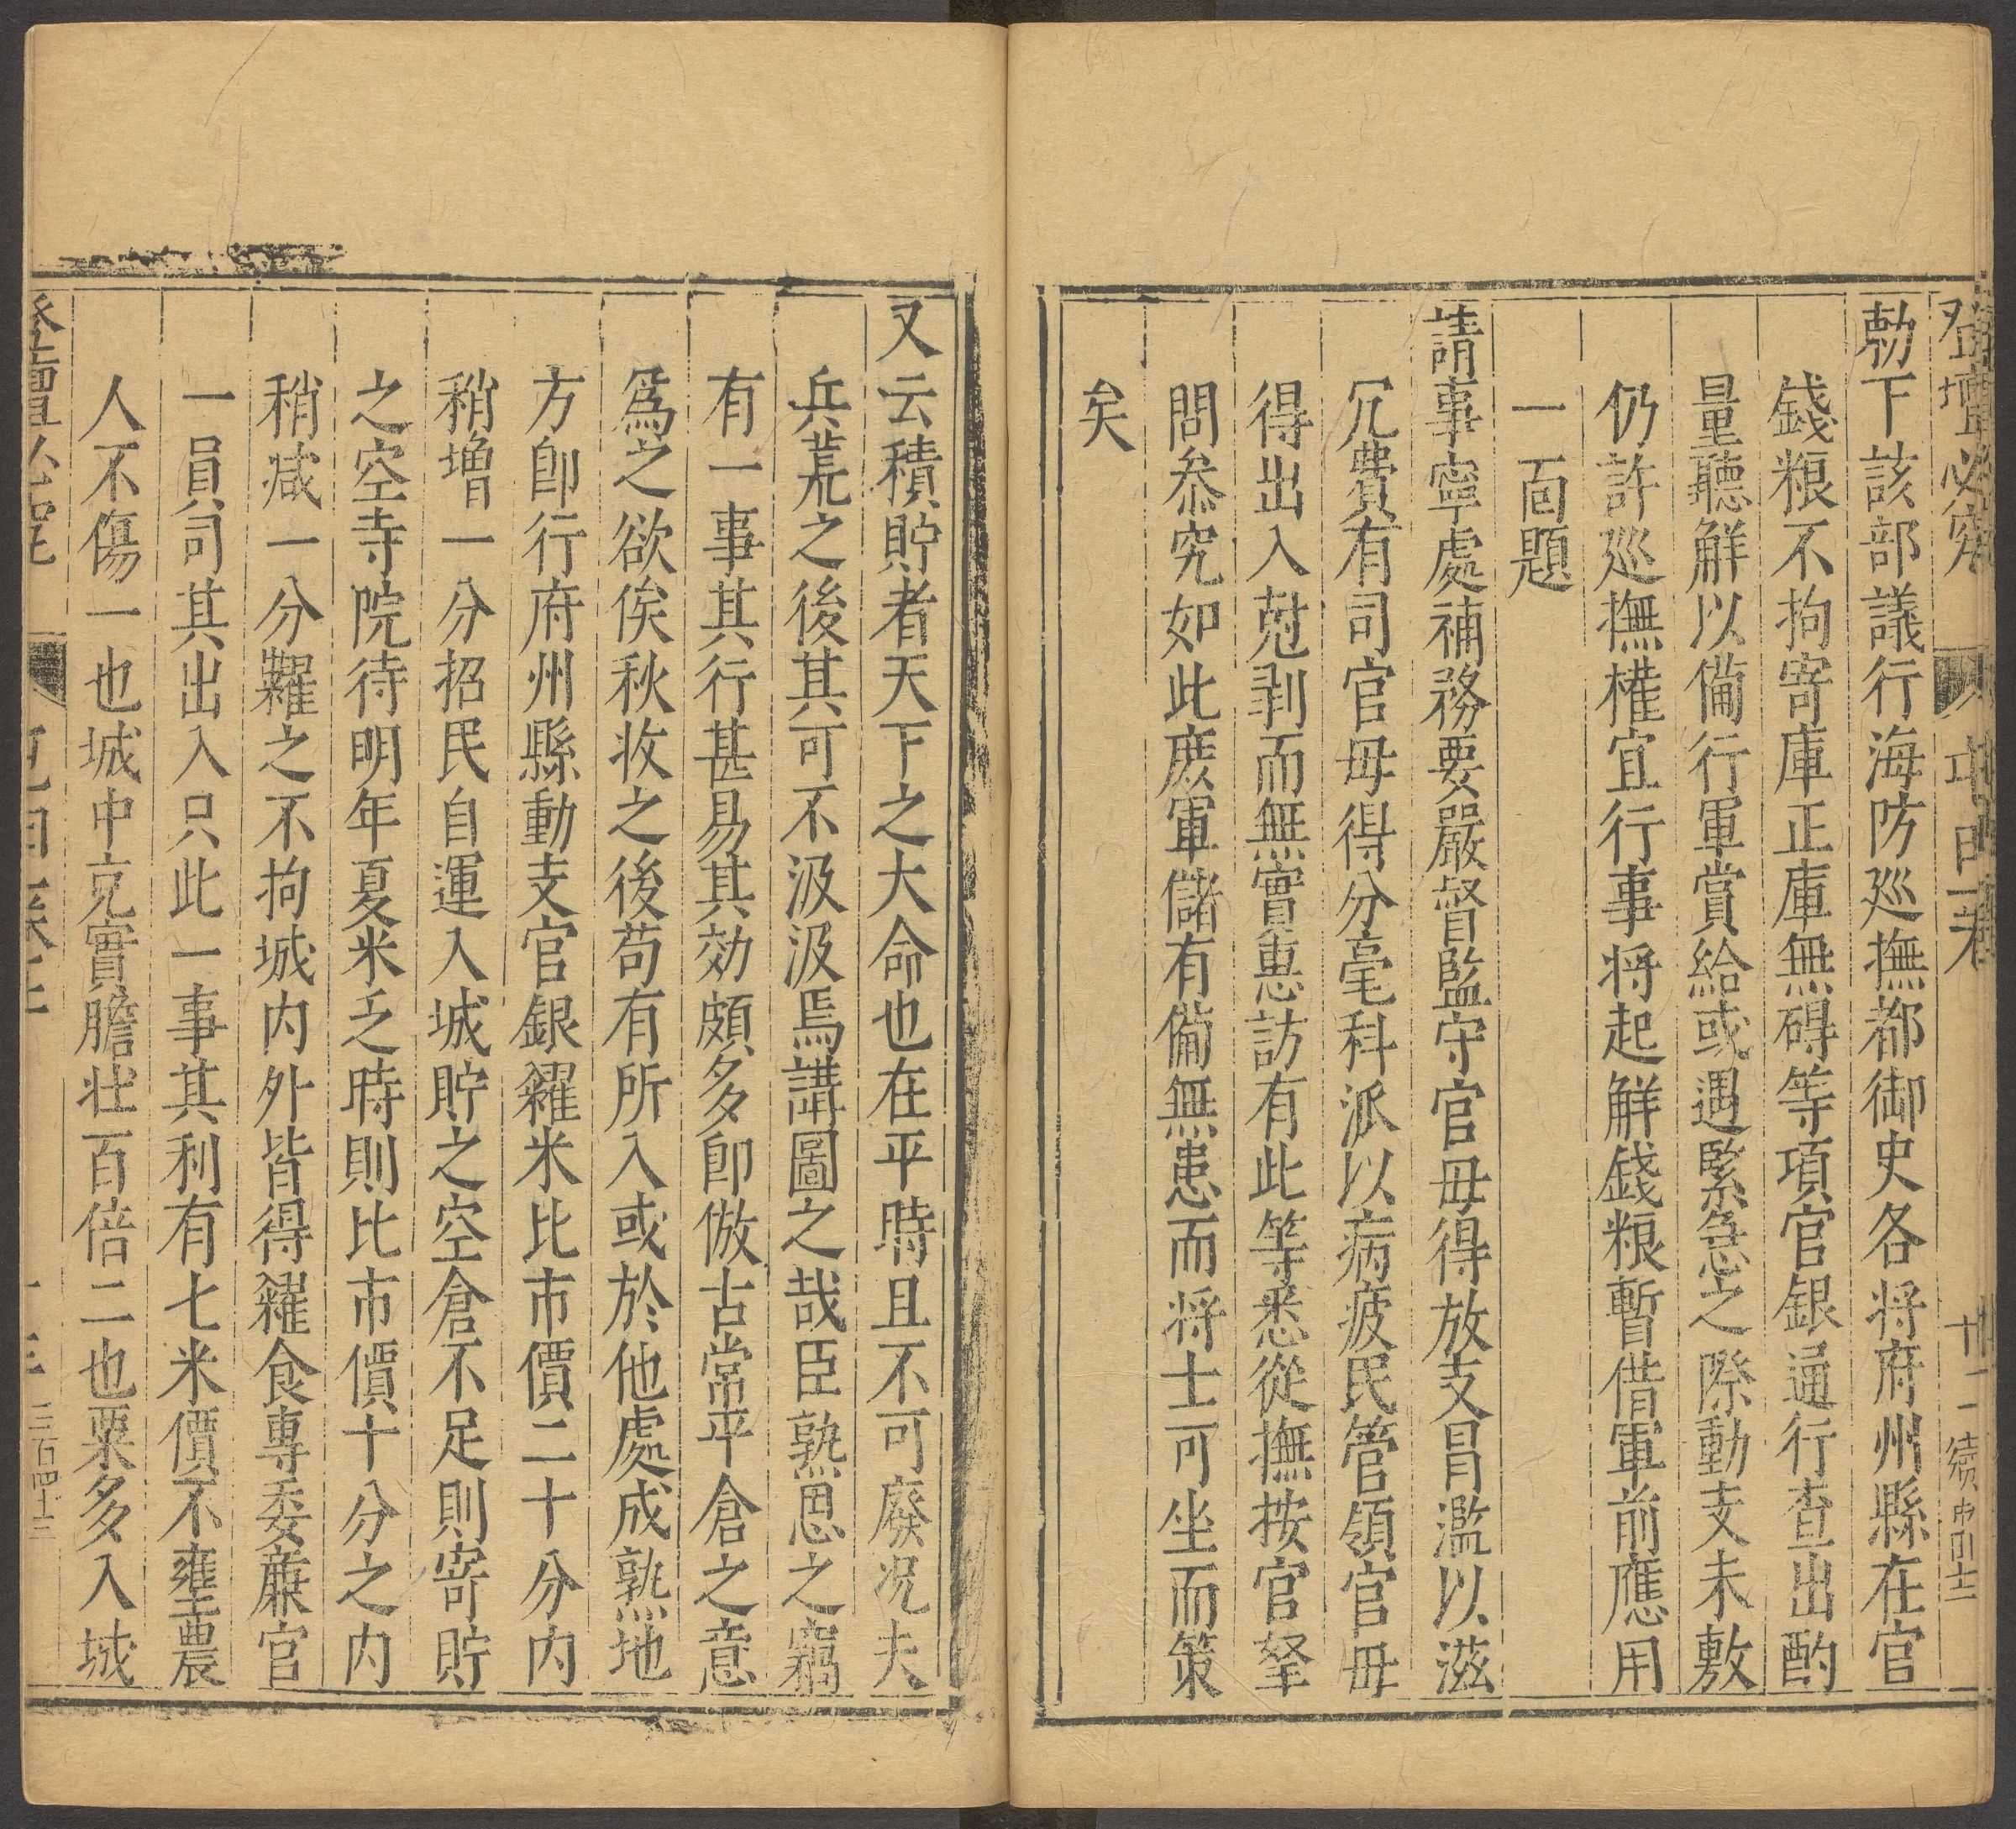 登壇必究
勅下該部議行海防廵撫都御史各将府州縣在官
錢粮不拘寄庫正庫無碍等項官銀通行查出酌
量聽觧以備行軍賞給或遇緊急之際動支未敷
仍許廵撫權宜行事将起觧錢粮暫借軍前應用
一面題
請事寧處補務要嚴督監守官毋得放支冒濫以滋
冗費有司官毋得分毫科派以病疲民管領官毋
得出入尅剥而無實惠訪有此等悉從撫按官拏
問叅究如此庶軍儲有備無患而将士可坐而策
矣
又云積貯者天下之大命也在平時且不可廢况夫
兵荒之後其可不汲汲焉講圖之哉臣熟思之竊
有一事其行甚易其効頗多卽倣古常平倉之意
爲之欲俟秋收之後苟有所入或於他處成熟地
方卽行府州縣動支官銀糴米比市價二十分内
稍增一分招民自運入城貯之空倉不足則寄貯
之空寺院待明年夏米乏時則比市價十分之内
稍减一分糶之不拘城内外皆得糴食專委廉官
一員司其出入只此一事其利有七米價不壅農
人不傷一也城中充實膽壮百倍二也粟多入城
登壇必究